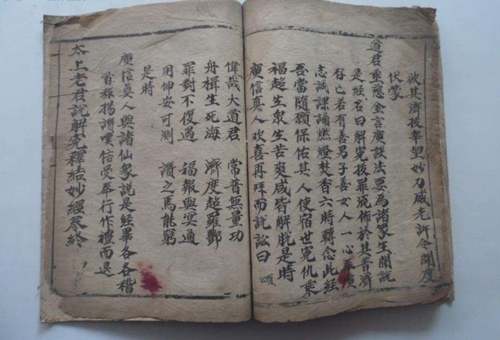 彼其濟拔幸望妙力威光許令開度
伏蒙
道君垂慈金言廣設法要為諸眾生開說
是經名曰解冤拔罪流佈於世普濟
存亡若有善男子善女人一心
志誠課誦燃燈焚香六時轉念此經
吾當隨願保佑其人使宿世冤仇乘
福超生眾生苦爽咸皆解脫是時
廣信真人歡喜再拜而說訟曰 頌
偉哉大道君 常普無量功
舟楫生死海 濟度超羅酆
罪對不復遇 福報與冥通
用伸安可測 潛之焉能窮
是時
廣信真人與諸仙眾說是經畢各各稽
首称揚讚嘆信受奉行作禮而退
太上老君說解冤釋結妙經卷終